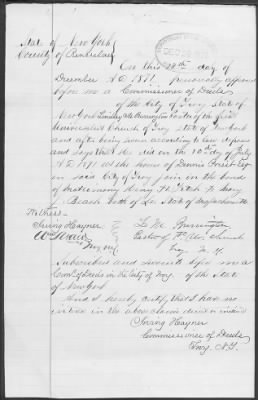 State of New York
County of Rensselaer
On this 28th day of
December A.D. 1871 personally appeared
before me a Commissioner of Deeds
of the City of Troy State of
New York Pastor of the first
Universalist Church of Troy State of New York
and after being sworn according to law deposes
and says that he did on the day of July
A.D. 1871 at the house of Dennis Esqr
in said City of Troy join in the bonds
of matrimony Henry H. to Mary
Beach both of State of
Witness
Irving Hayner
Pastor of 1st Univ. Church
Troy N.Y.
Subscribed and sworn to before me a
Com. of Deeds in the City of Troy of the State
of New York
And I hereby certify that I have no
interest in the above claim direct or indirect
Irving Hayner
Commissioner of Deeds
Troy N.Y.